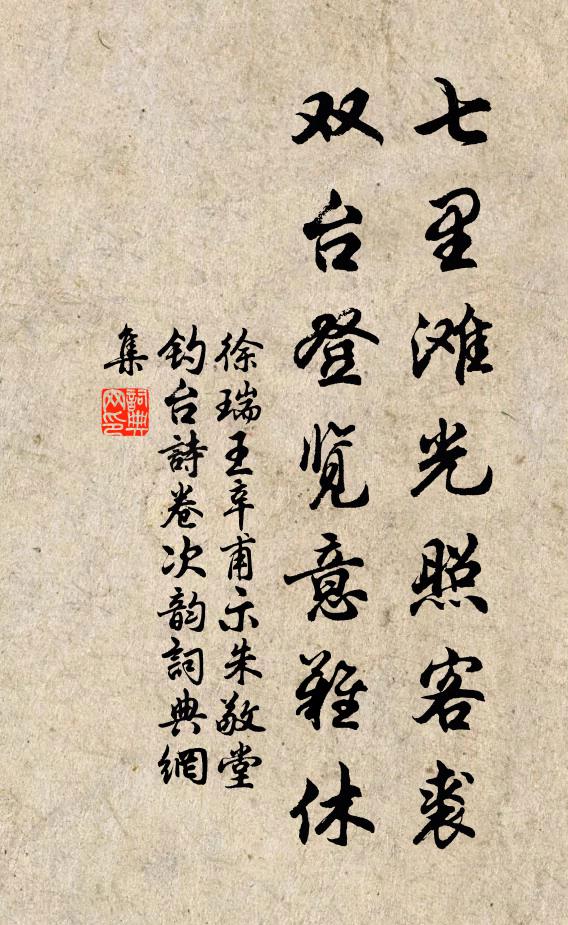 七里滩光照客裘
双台登览意难休
徐瑞王辛甫示朱敬堂
钓台詩卷次韵詞典網
集
詞典网印